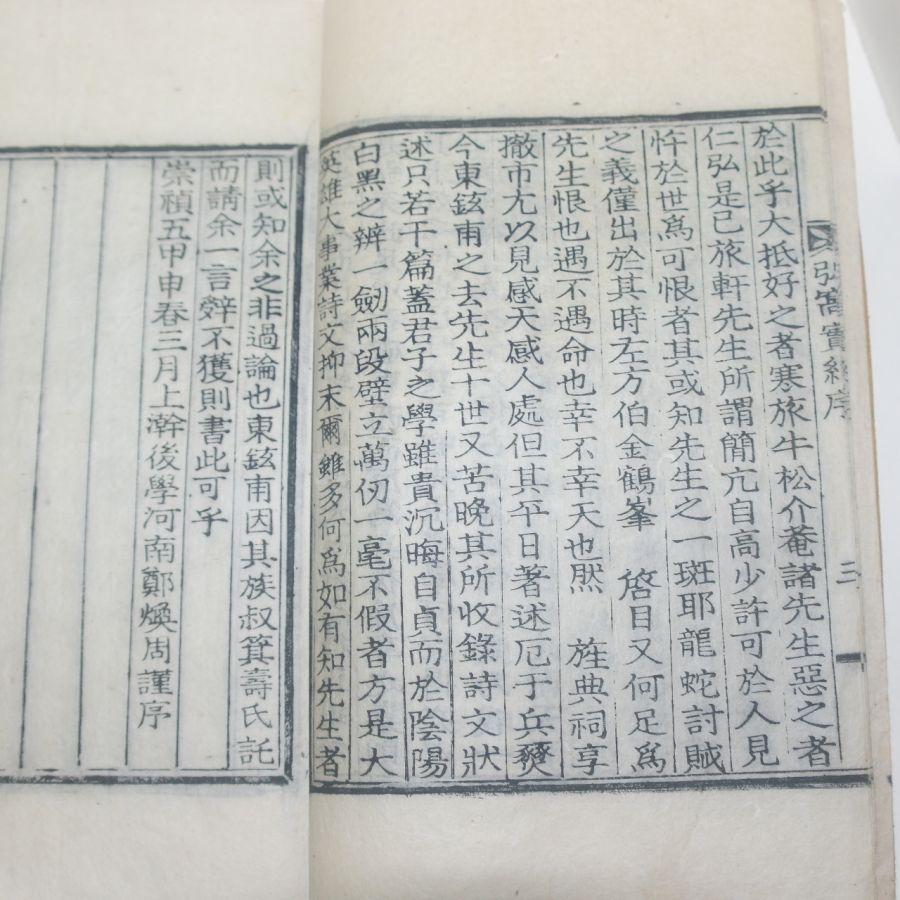 窩實紀序
三
於此乎大抵好之者寒旅牛松介菴諸先生惡之者
仁弘是已旅軒先生所謂簡亢自高少許可於人見
忤於世爲可恨者其或知先生之一斑耶龍蛇討賊
之義僅出於其時左方伯金鶴峯 啓目又何足爲
先生恨也遇不遇命也幸不幸天也然 旌典祠享
撤市尤以見感天感人處但其平日著述厄于兵燹
今東鉉甫之去先生十世又苦晚其所收錄詩文狀
述只若干篇蓋君子之學雖貴沉晦自貞而於陰陽
白黑之辨一劒兩段壁立萬仞一毫不假者方是大
英雄大事業詩文抑末爾雖多何爲如有知先生者
則或知余之非過論也東鉉甫因其族叔箕壽氏託
而請余一言辤不獲則書此可乎
崇禎五甲申春三月上澣後學河南鄭煥周謹序